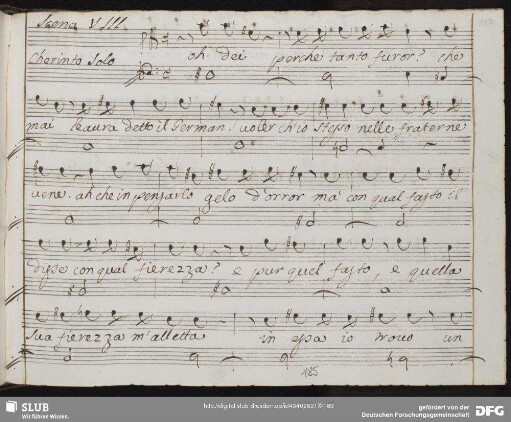 Scena VIII.
Cherinto Solo oh dei perche tanto furor? che
mai le avra detto il German? voler ch'io stesso nelle fraterne
vene. ah che in pensarlo gelo d'orror ma con qual fasto il
disse con qual fierezza? e pur quel fasto, e quella
sua fierezza m'alletta in essa io trovo un
185
SLUB
Wir führen Wissen.
gefördert von der
Deutschen Forschungsgemeinschaft
DFG